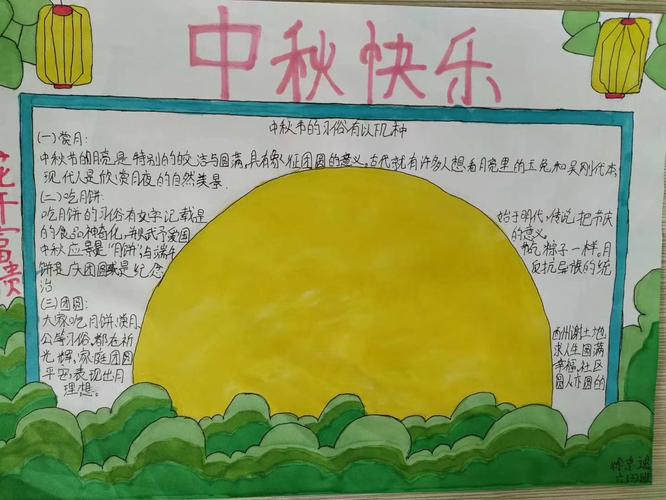 中秋快乐
花开富贵
中秋节的习俗有以下几种
(一)赏月:
中秋节的月亮是特别的皎洁与圆满,具有象征团圆的意义。古代就有许多人想看月亮里的玉兔和吴刚伐木
现代人是欣赏月夜的自然美景.
(二)吃月饼:
吃月饼的习俗有文字记载是 始于明代,传说把节庆
的食品神奇化,并赋予爱国 的意义。
中秋应景是“月饼”与端午 节吃粽子一样。月
饼是庆团圆或是纪念 反抗异族的统
治
(三)团圆:
大家吃月饼,赏月, 西州谢土地
公等习俗,都在祈 求人生圆满
光辉,家庭团圆 幸福,社区
平安,表现出月 圆人亦圆的
理想.
六
班